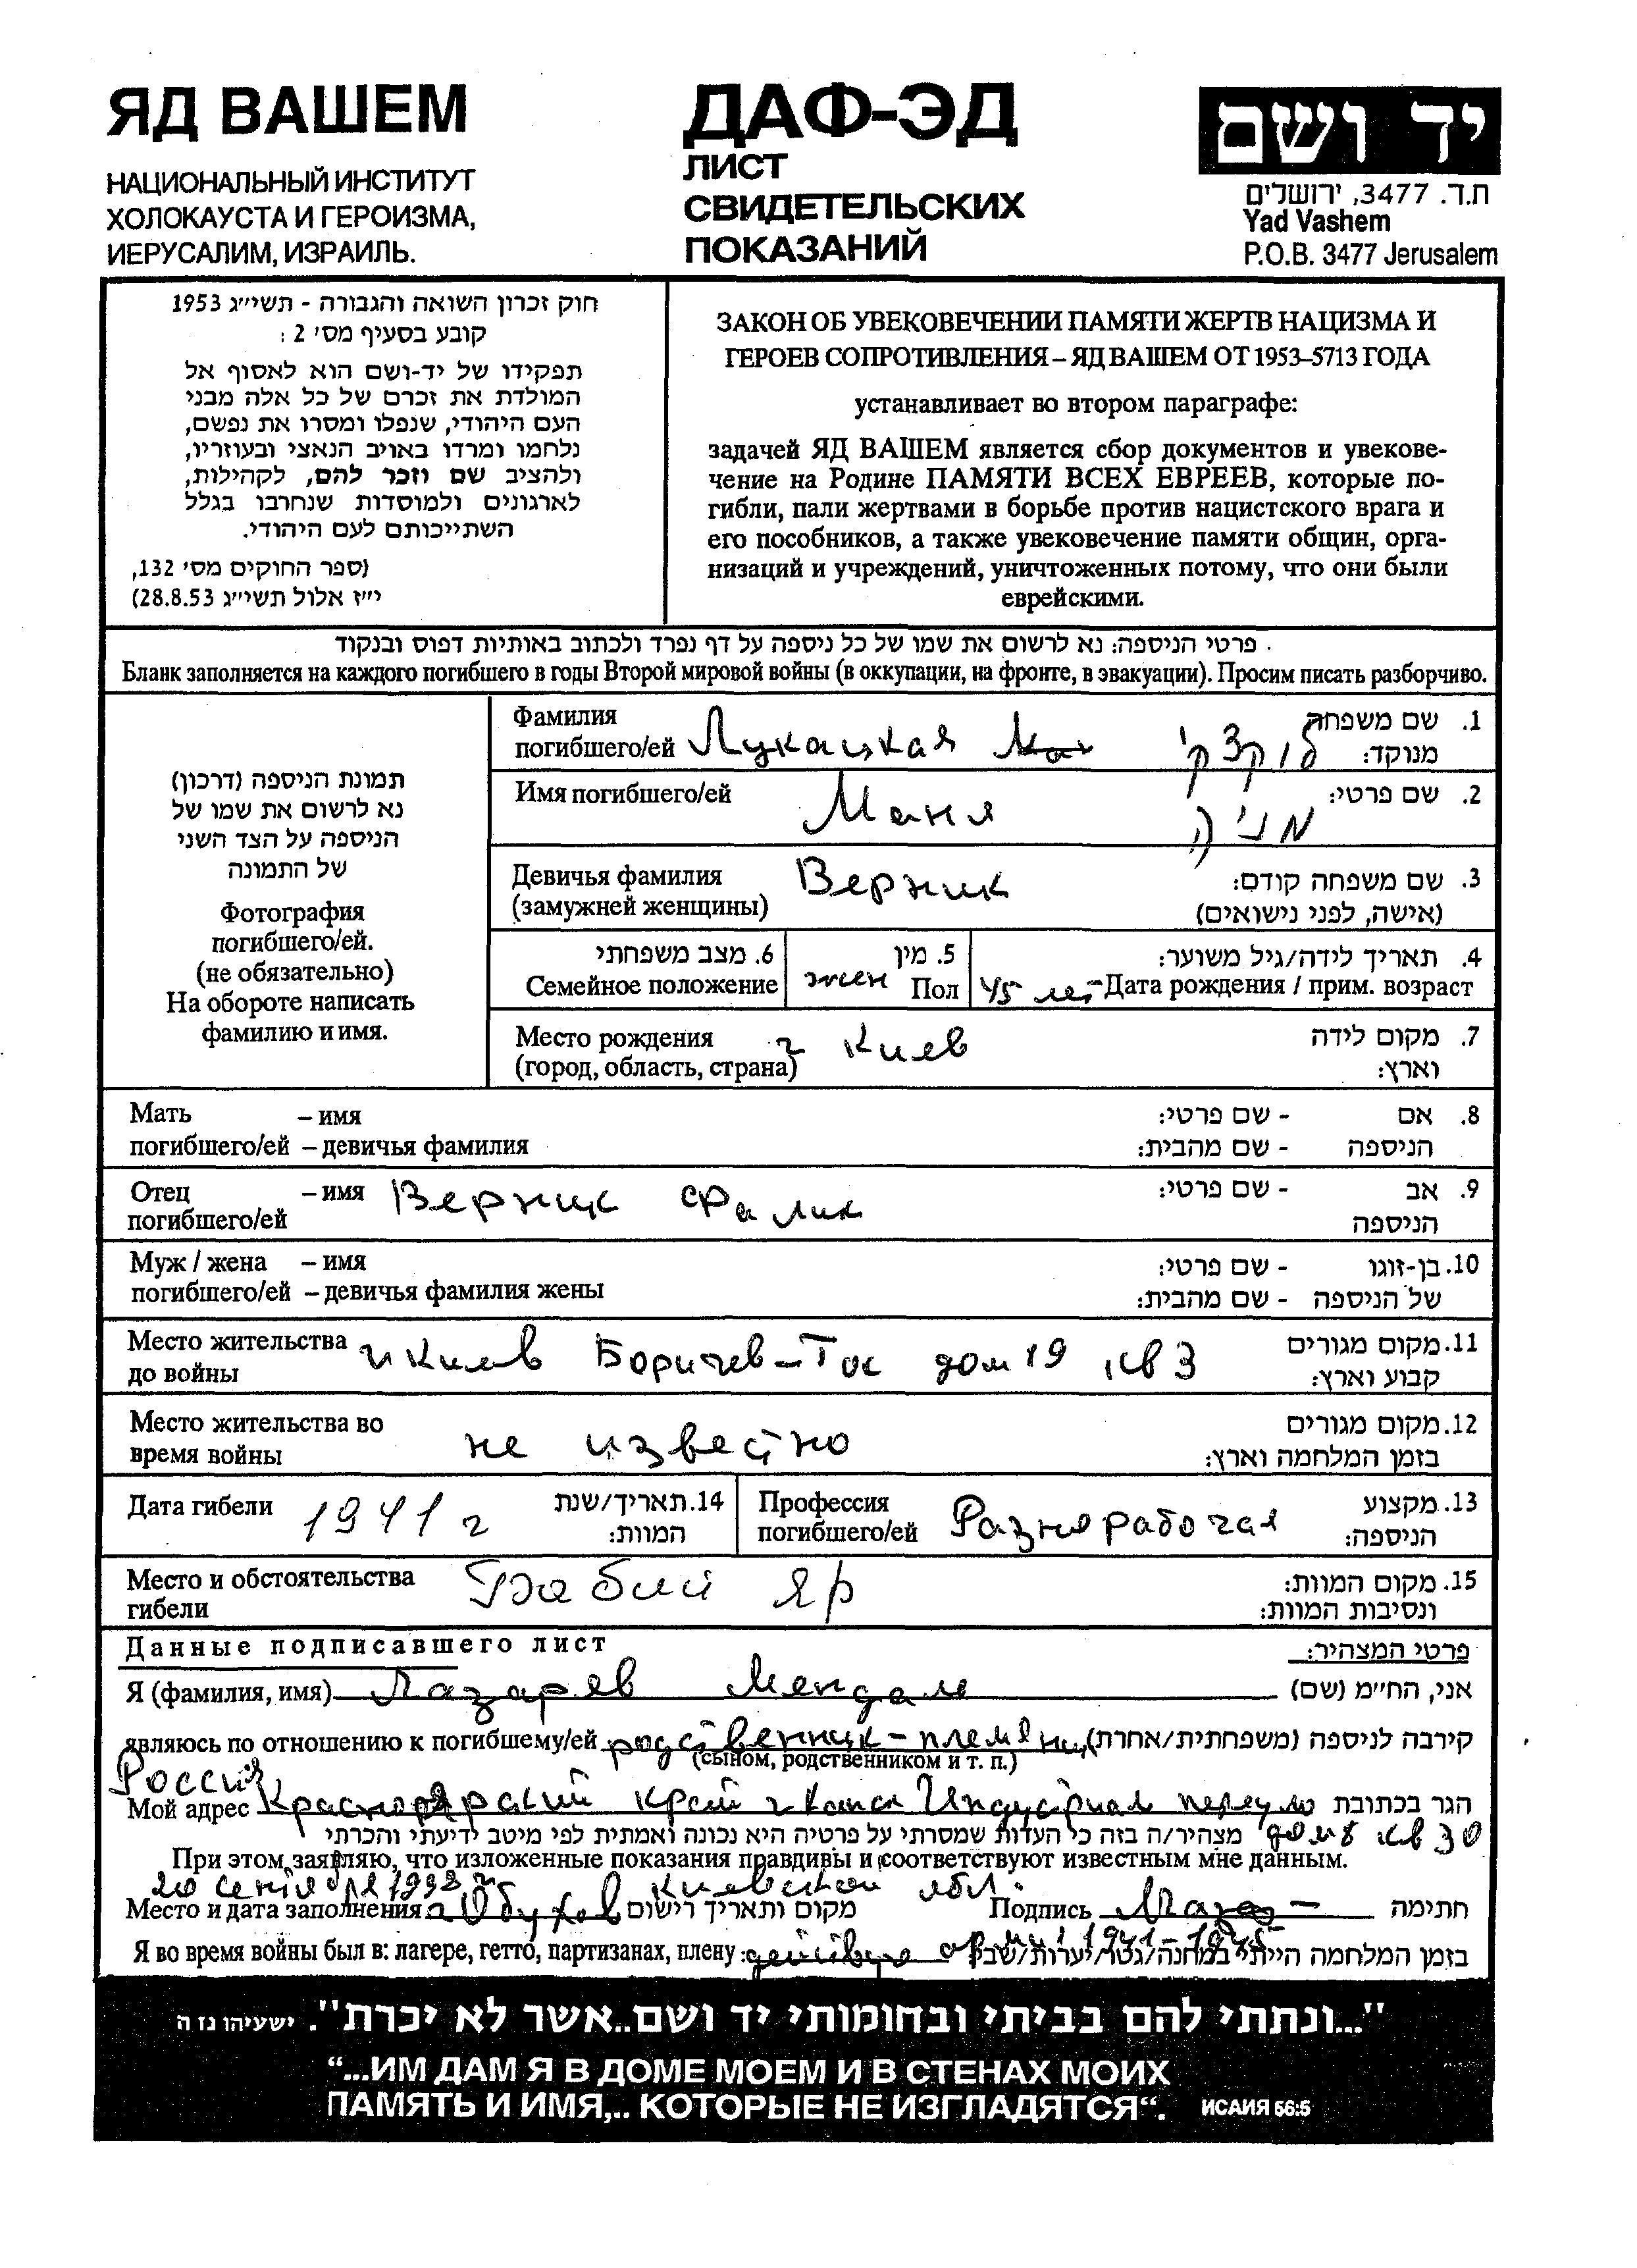 ЯД ВАШЕМ
НАЦИОНАЛЬНЫЙ ИНСТИТУТ
ХОЛОКАУСТА И ГЕРОИЗМА,
ИЕРУСАЛИМ, ИЗРАИЛЬ.
ДАФ-ЭД
ЛИСТ
СВИДЕТЕЛЬСКИХ
ПОКАЗАНИЙ
יד ושם
ת.ד. 3477, ירושלים
Yad Vashem
P.O.B. 3477 Jerusalem
חוק זכרון השואה והגבורה - תשי״ג 1953
קובע בסעיף מס׳ 2 :
תפקידו של יד-ושם הוא לאסוף אל
המולדת את זכרם של כל אלה מבני
העם היהודי, שנפלו ומסרו את נפשם,
נלחמו ומרדו באויב הנאצי ובעוזריו,
ולהציב שם וזכר להם, לקהילות,
לארגונים ולמוסדות שנחרבו בגלל
השתייכותם לעם היהודי.
(ספר החוקים מס׳ 132,
י״ז אלול תשי״ג 28.8.53)
ЗАКОН ОБ УВЕКОВЕЧЕНИИ ПАМЯТИ ЖЕРТВ НАЦИЗМА И
ГЕРОЕВ СОПРОТИВЛЕНИЯ – ЯД ВАШЕМ ОТ 1953–5713 ГОДА
устанавливает во втором параграфе:
задачей ЯД ВАШЕМ является сбор документов и увекове-
чение на Родине ПАМЯТИ ВСЕХ ЕВРЕЕВ, которые по-
гибли, пали жертвами в борьбе против нацистского врага и
его пособников, а также увековечение памяти общин, орга-
низаций и учреждений, уничтоженных потому, что они были
еврейскими.
פרטי הניספה: נא לרשום את שמו של כל ניספה על דף נפרד ולכתוב באותיות דפוס ובנקוד
Бланк заполняется на каждого погибшего в годы Второй мировой войны (в оккупации, на фронте, в эвакуации). Просим писать разборчиво.
תמונת הניספה (דרכון)
נא לרשום את שמו של
הניספה על הצד השני
של התמונה
Фотография
погибшего/ей.
(не обязательно)
На обороте написать
фамилию и имя.
Фамилия 1. שם משפחה
погибшего/ей Лукацкая לוקצקי מנוקד:
Имя погибшего/ей Маня מניה 2. שם פרטי:
Девичья фамилия Верник 3. שם משפחה קודם:
(замужней женщины) (אישה, לפני נישואים)
6. מצב משפחתי 5. מין 4. תאריך לידה/גיל משוער:
Семейное положение жен Пол 45 лет Дата рождения / прим. возраст
Место рождения г Киев 7. מקום לידה
(город, область, страна) וארץ:
Мать – имя 8. אם - שם פרטי:
погибшего/ей – девичья фамилия הניספה - שם מהבית:
Отец – имя Верник Фалик 9. אב - שם פרטי:
погибшего/ей הניספה
Муж / жена – имя 10. בן-זוגו - שם פרטי:
погибшего/ей – девичья фамилия жены של הניספה - שם מהבית:
Место жительства г Киев Боричев-Ток дом 19 кв 3 11. מקום מגורים
до войны קבוע וארץ:
Место жительства во 12. מקום מגורים
время войны не известно בזמן המלחמה וארץ:
Дата гибели 1941 г 14. תאריך/שנת המוות:
Профессия 13. מקצוע
погибшего/ей Разнорабочая הניספה:
Место и обстоятельства Бабий Яр 15. מקום המוות:
гибели ונסיבות המוות:
Данные подписавшего лист פרטי המצהיר:
Я (фамилия, имя) Лазарев Мендал אני, הח״מ (שם)
являюсь по отношению к погибшему/ей родственник-племяниц קירבה לניספה (משפחתית/אחרת)
(сыном, родственником и т. п.)
Россия
Мой адрес Красноярский край г Канск Индустриал переуло הגר בכתובת
дом 8 кв 30 מצהיר/ה בזה כי העדות שמסרתי על פרטיה היא נכונה ואמתית לפי מיטב ידיעתי והכרתי
При этом заявляю, что изложенные показания правдивы и соответствуют известным мне данным.
20 сентября 1998 г Киевской обл.
Место и дата заполнения г Обухов מקום ותאריך רישום Подпись חתימה
Я во время войны был в: лагере, гетто, партизанах, плену: действую армии 1941-1945 בזמן המלחמה הייתי במחנה/גטו/יערות/שבי
"...ונתתי להם בביתי ובחומותי יד ושם..אשר לא יכרת". ישעיהו נז ה
“...ИМ ДАМ Я В ДОМЕ МОЕМ И В СТЕНАХ МОИХ
ПАМЯТЬ И ИМЯ,.. КОТОРЫЕ НЕ ИЗГЛАДЯТСЯ“. ИСАИЯ 56:5